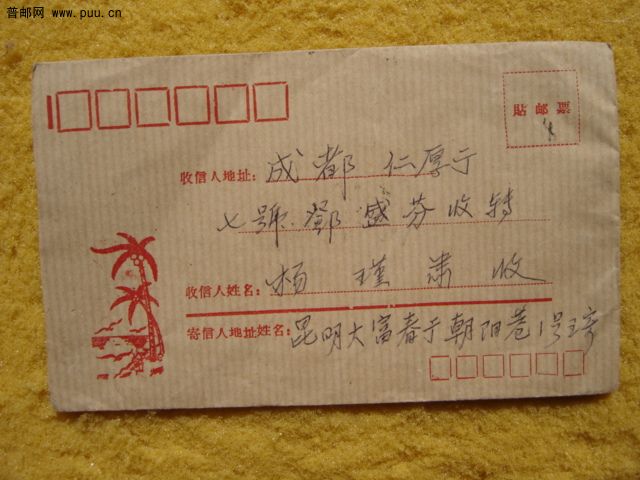 普邮网 www.puu.cn
貼郵票
收信人地址：成都 仁厚亍
七號 鄧盛芬收转
收信人姓名：杨瑾肃收
寄信人地址姓名：昆明大富春亍朝阳巷1号王寄